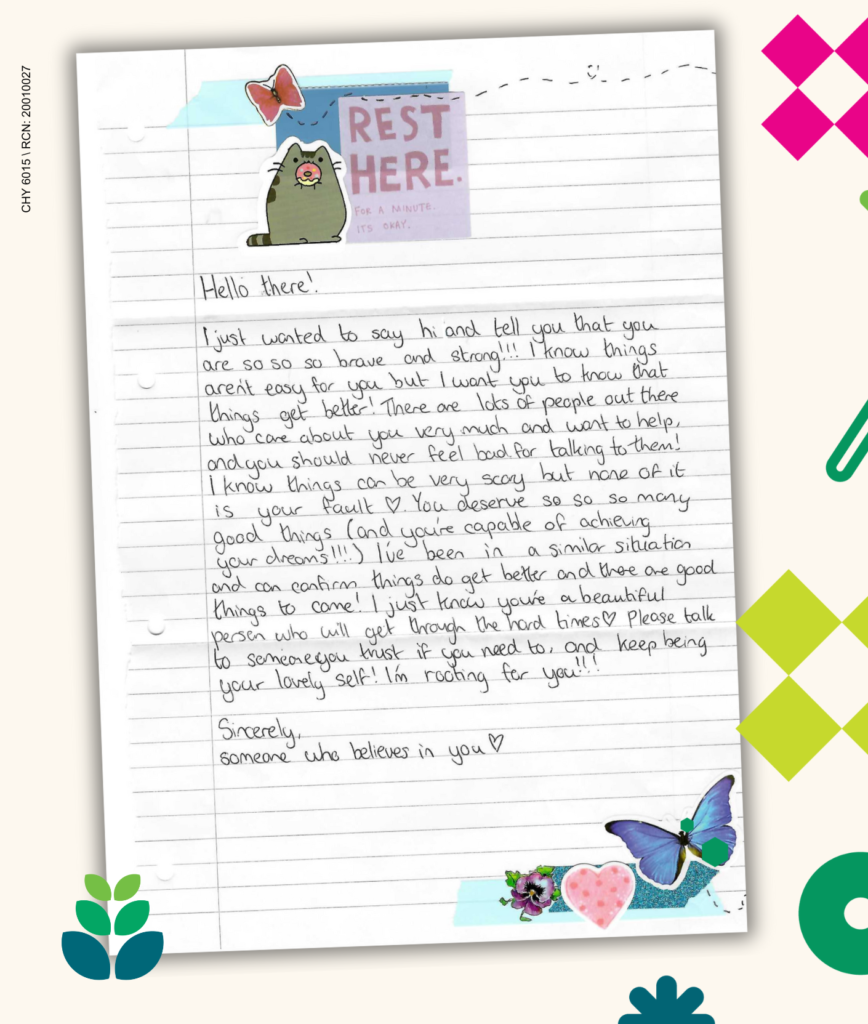 CHY 6015 \ RCN: 20010027
REST
HERE.
FOR A MINUTE.
ITS OKAY.
Hello there!
I just wanted to say hi and tell you that you
are so so so brave and strong!!! I know things
aren't easy for you but I want you to know that
things get better! There are lots of people out there
who care about you very much and want to help,
and you should never feel bad for talking to them!
I know things can be very scary but none of it
is your fault ♡. You deserve so so so many
good things (and you're capable of achieving
your dreams!!!) I've been in a similar situation
and can confirm things do get better and there are good
things to come! I just know you're a beautiful
person who will get through the hard times♡ Please talk
to someone you trust if you need to, and keep being
your lovely self! I'm rooting for you!!!
Sincerely,
someone who believes in you♡